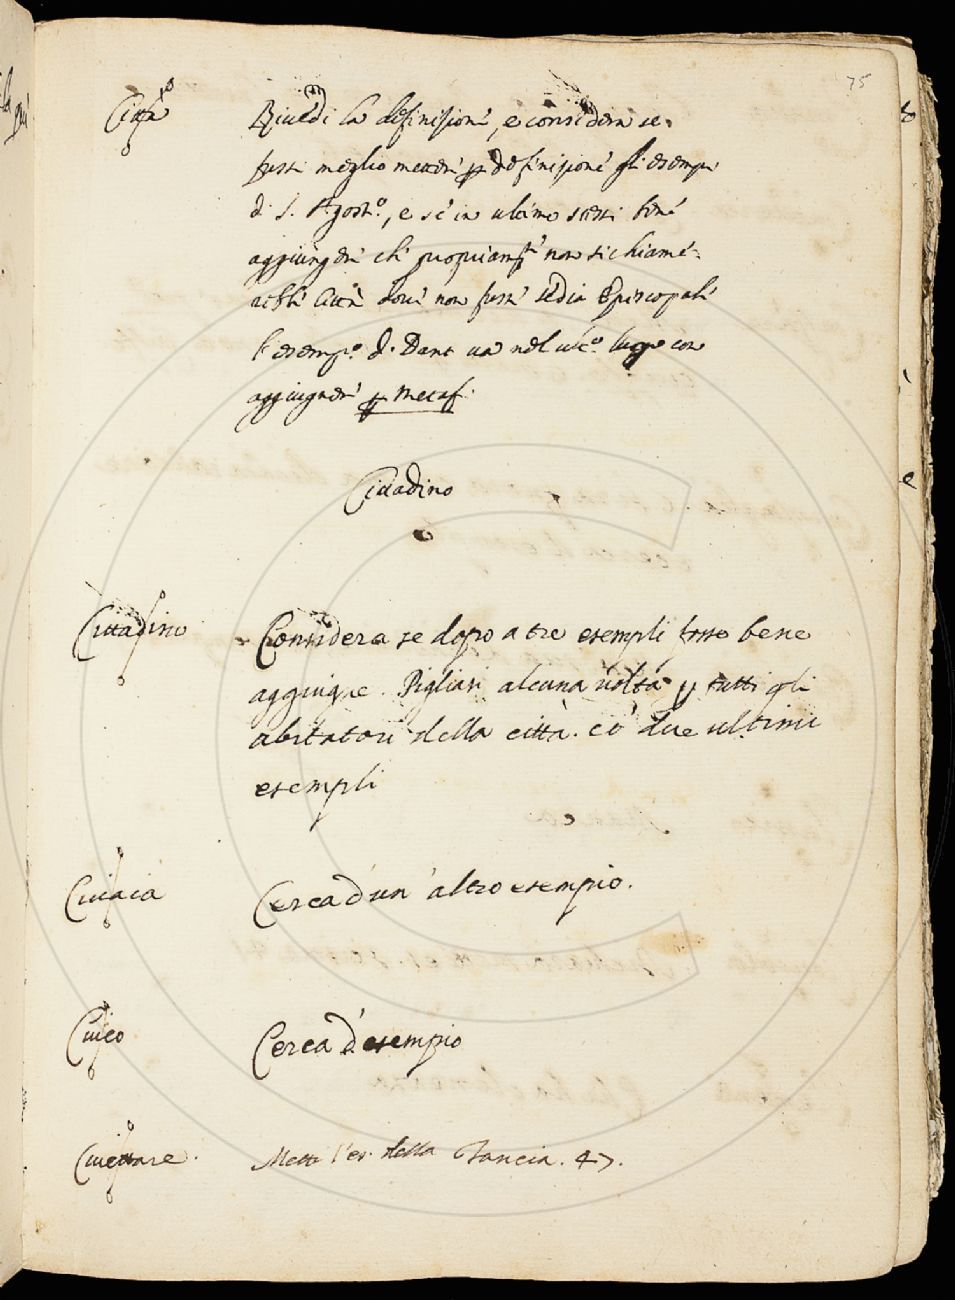 75
Città Rivedi la definizione, e considera se
fusse meglio mettere p definizione gli esempi
di S. Agost.º, e se in ultimo stessi bene
aggiungere che propriam.te non si chiame=
rebbe Città dove non fusse sedia Episcopale
l'esemp.º di Dant va nel luogo con
aggiugnere p metaf.
Cittadino
Cittadino Considera se dopo a tre esempli fosse bene
aggiugne. Pigliasi alcuna volta p tutti gli
abitatori della città. e due ultimi
esempli
Civaia Cerca d'un'altro esempio.
Civico Cerca d'esempio
Civettare. Metti l'es. della Tancia. 47.